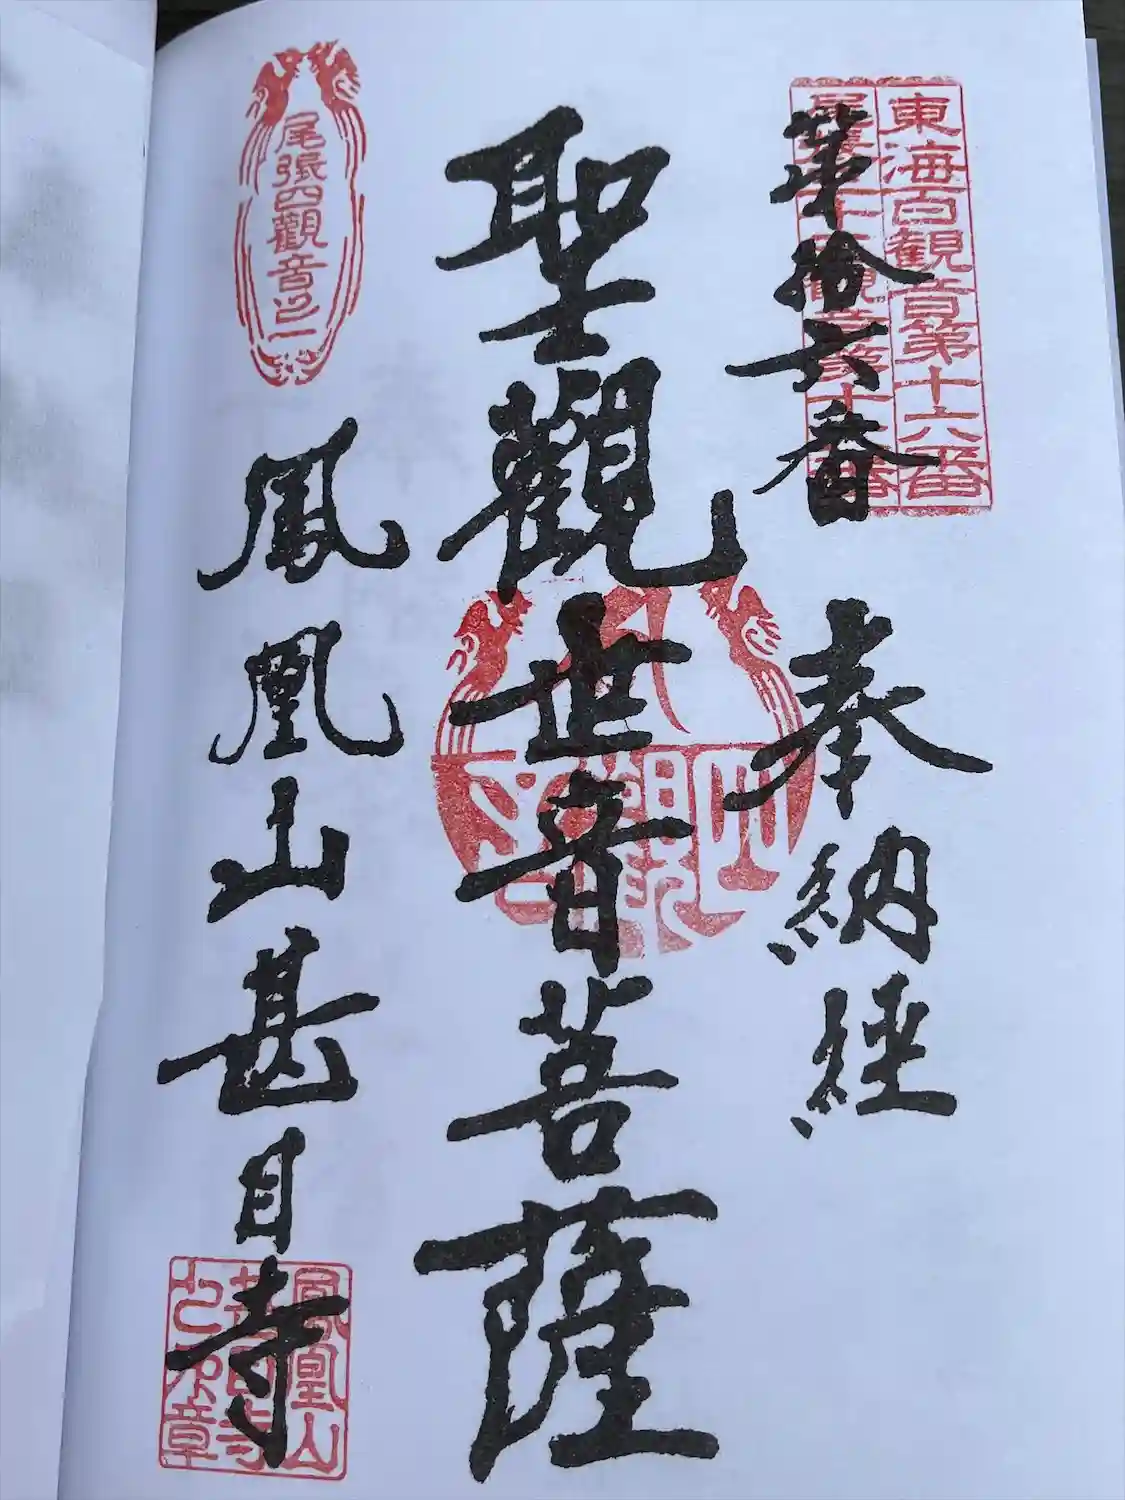 東海百観音第十六番
尾張三十三観音第十六番
第拾六番
奉納経
聖觀世音菩薩
四観音
尾張四觀音之一
鳳凰山甚目寺
鳳凰山
甚目寺
之印章